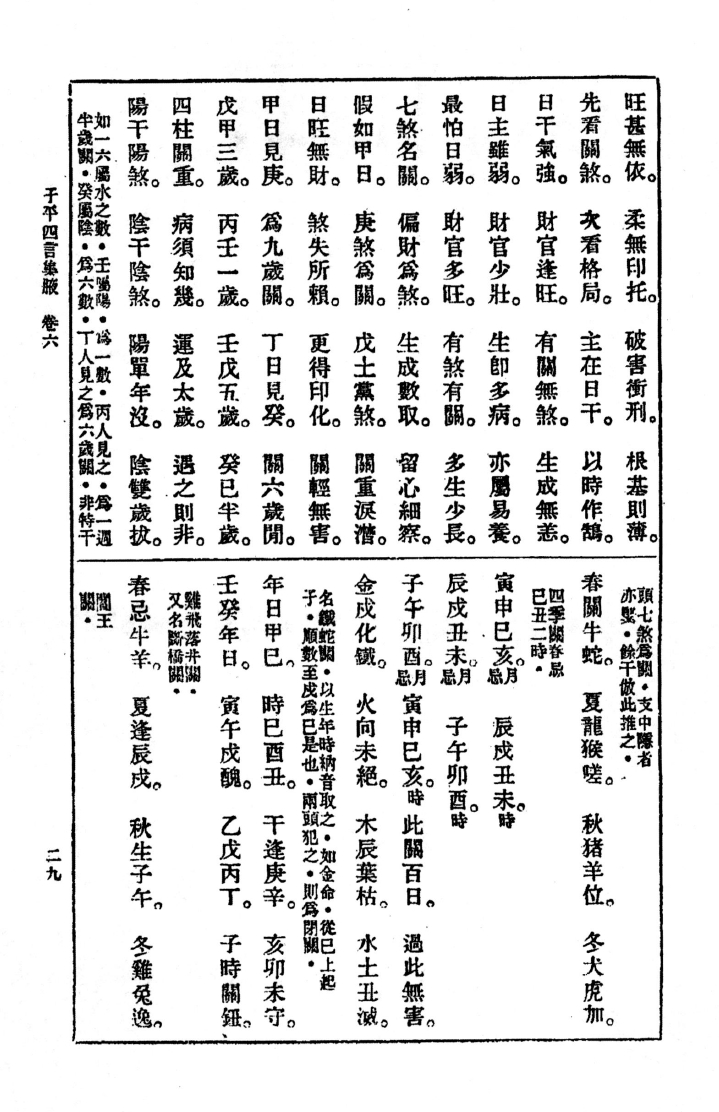 旺甚無依。柔無印托。破害衝刑。根基則薄。
先看關煞。次看格局。主在日干。以時作鵠。
日干氣強。財官逢旺。有關無煞。生成無恙。
日主雖弱。財官少壯。生卽多病。亦屬易養。
最怕日弱。財官多旺。有煞有關。多生少長。
七煞名關。偏財爲煞。生成數取。留心細察。
假如甲日。庚煞爲關。戊土黨煞。關重淚潸。
日旺無財。煞失所賴。更得印化。關輕無害。
甲日見庚。爲九歲關。丁日見癸。關六歲閒。
戊甲三歲。丙壬一歲。壬戊五歲。癸已半歲。
四柱關重。病須知幾。運及太歲。遇之則非。
陽干陽煞。陰干陰煞。陽單年沒。陰雙歲拔。
如一六屬水之數・壬屬陽・爲一數・丙人見之・爲一週
半歲關・癸屬陰・爲六數・丁人見之爲六歲關・非特干
頭七煞爲關・支中隱者
亦豎・餘干倣此推之・
春關牛蛇。夏龍猴嗟。秋猪羊位。冬犬虎加。
四季關春忌
巳丑二時・
寅申巳亥。月 辰戌丑未。時
辰戌丑未。月忌 子午卯酉。時
子午卯酉。月忌 寅申巳亥。時 此關百日。過此無害。
金戌化鐵。火向未絕。木辰葉枯。水土丑滅。
名鐵蛇關・以生年時納音取之・如金命・從巳上起
子・順數至戌爲巳是也・兩頭犯之・則爲閉關・
年日甲巳。時巳酉丑。干逢庚辛。亥卯未守。
壬癸年日。寅午戌醜。乙戊丙丁。子時關鈕。
雞飛落井關・
又名斷橋關・
春忌牛羊。夏逢辰戌。秋生子午。冬雞兔逸。
閻王
關・
子平四言集腋 卷六
二九